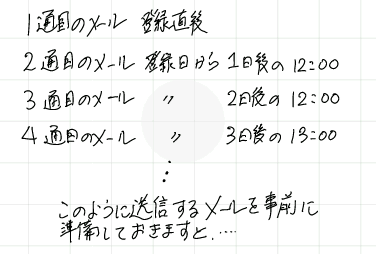 1通目のメール 登録直後
2通目のメール 登録日から 1日後の 12:00
3通目のメール 〃 2日後の 12:00
4通目のメール 〃 3日後の 13:00
⋮
このように送信するメールを事前に
準備しておきますと、…‥